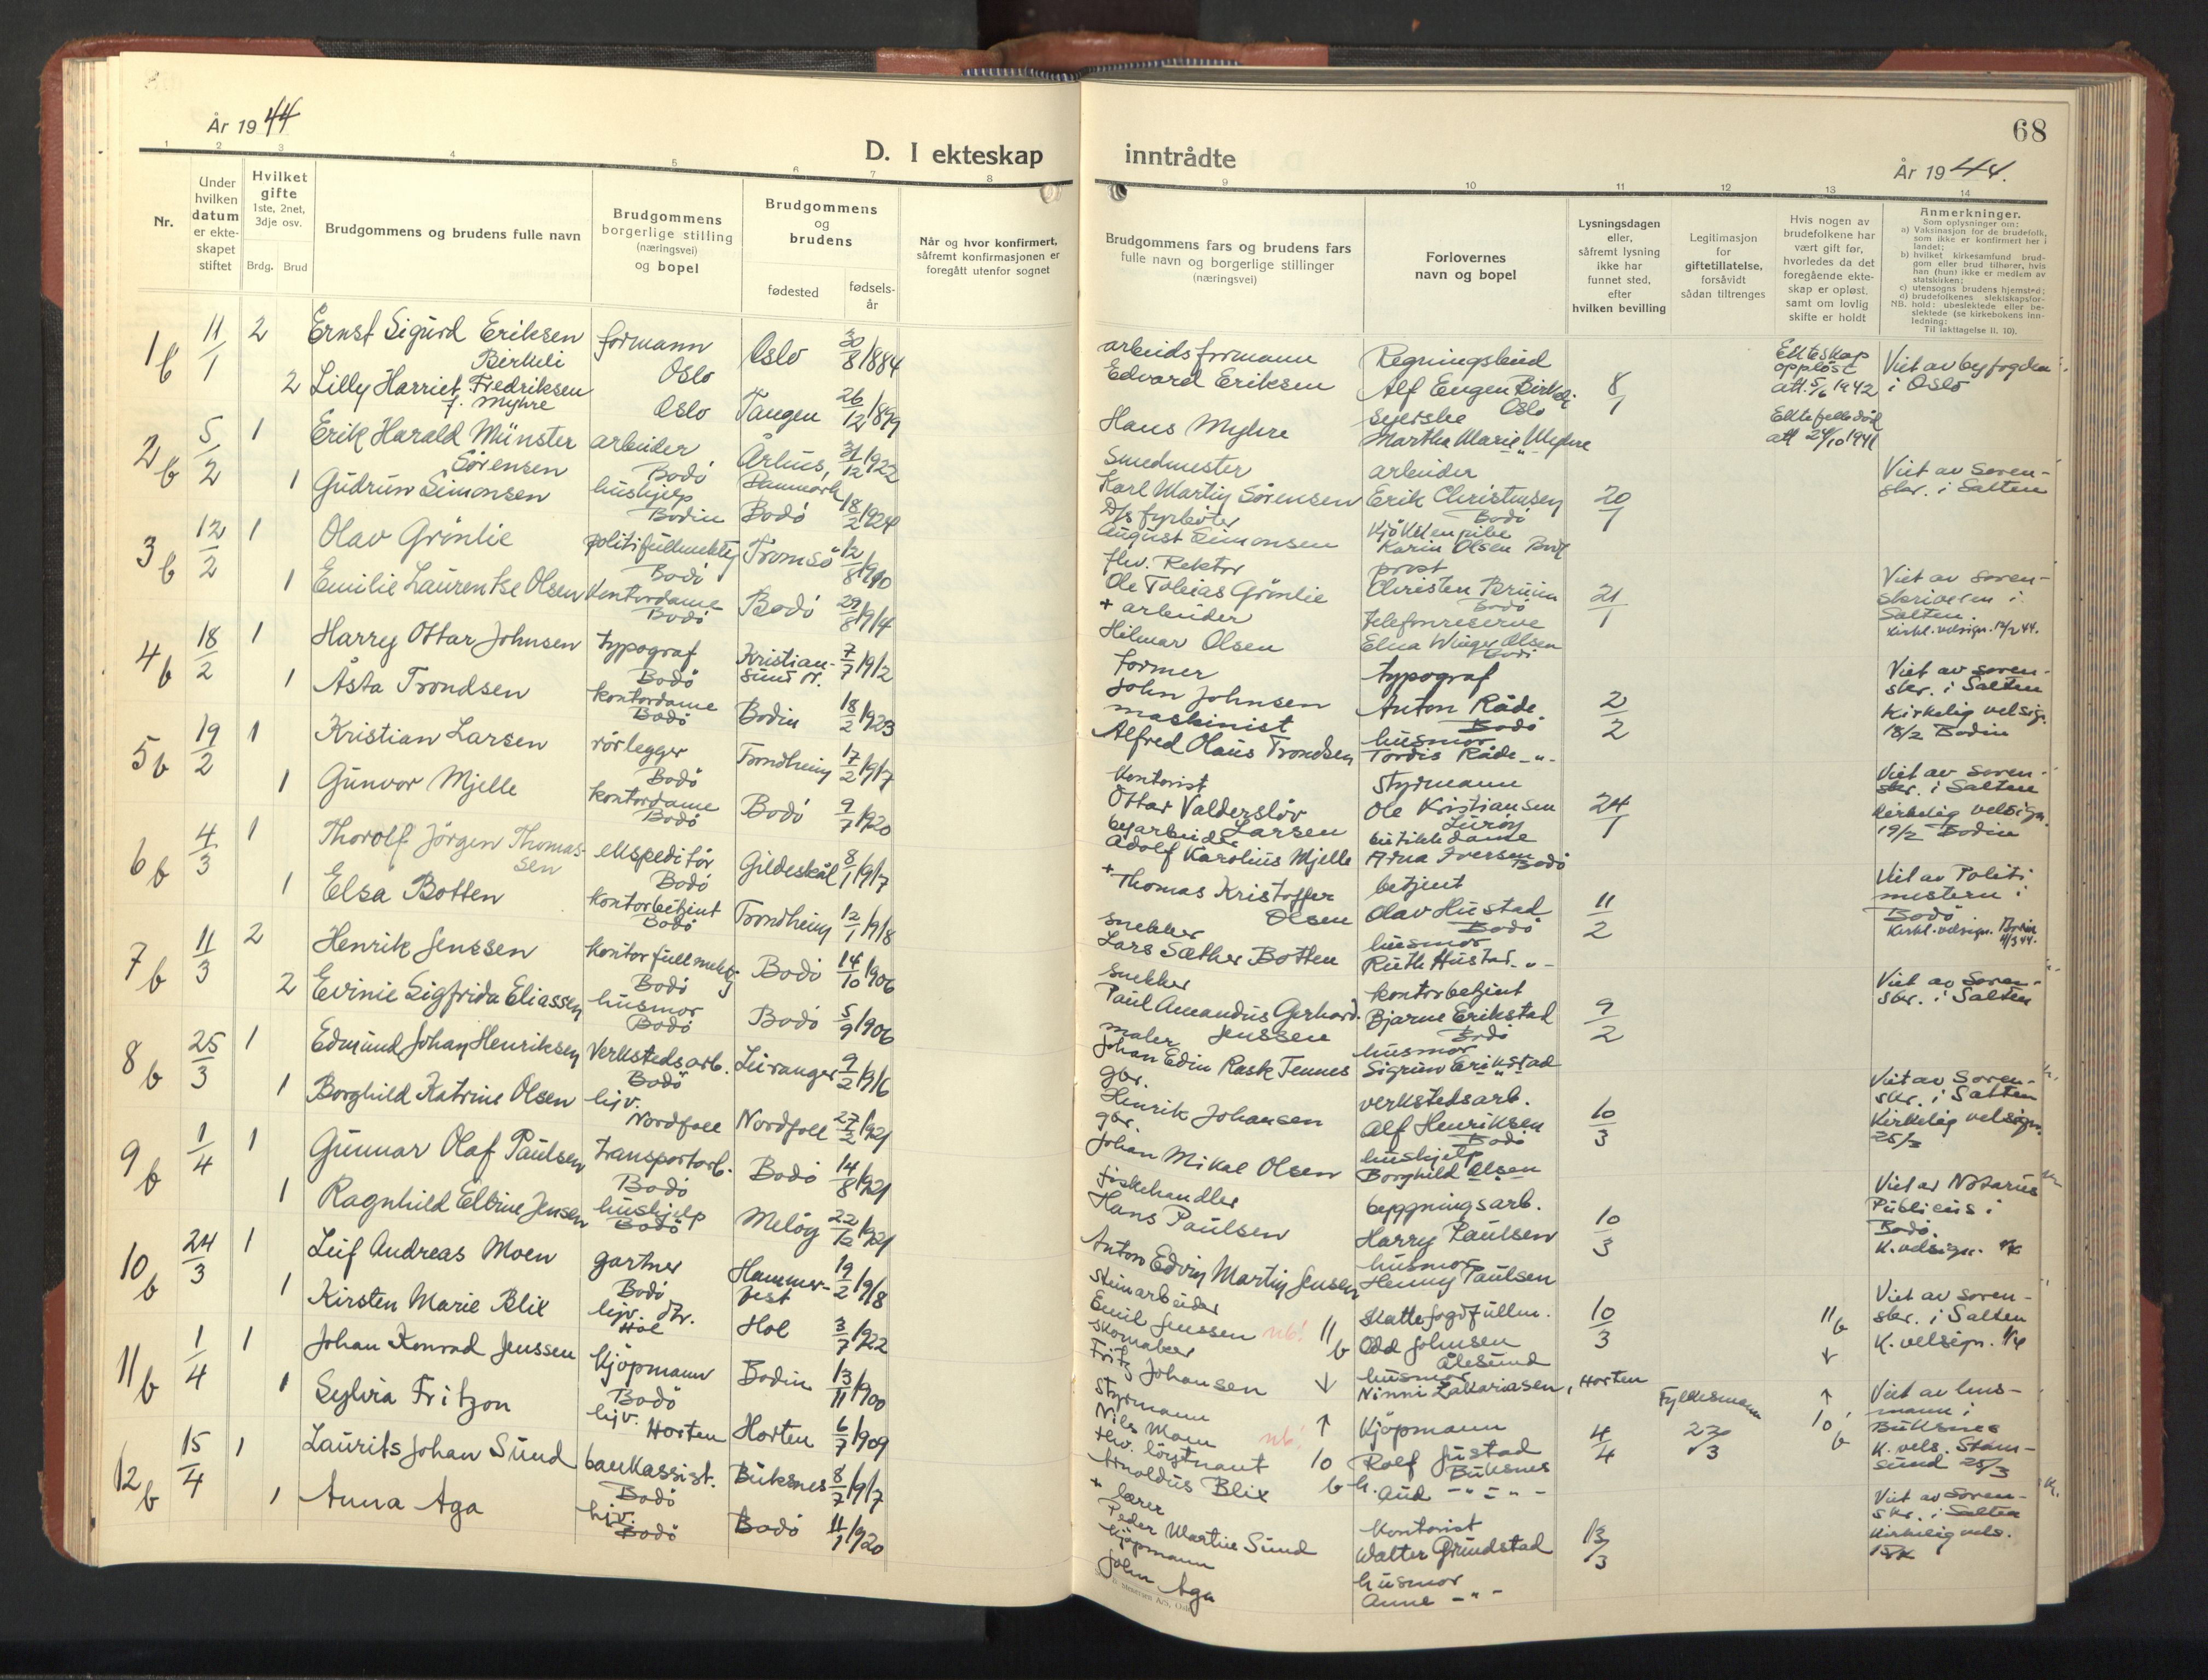 År 1944
D. I ekteskap
1 2 3 4 5 6 7 8
Nr.
Under hvilken datum er ekteskapet stiftet
Hvilket gifte
1ste, 2net, 3dje osv.
Brdg. Brud
Brudgommens og brudens fulle navn
Brudgommens borgerlige stilling (næringsvei) og bopel
Brudgommens og brudens
fødested
fødselsår
Når og hvor konfirmert, såfremt konfirmasjonen er foregått utenfor sognet
1 b 11/1 2 Ernst Sigurd Eriksen Birkeli formann Oslo Oslo 30/8 1884
2 Lilly Harriet Fredriksen f. Myhre Oslo Tangen 26/12 1899
2 b 5/2 1 Erik Harald Münster Sörensen arbeider Bodö Århus, Danmark 31/12 1922
1 Gudrun Simonsen hushjelp Bodin Bodö 18/2 1924
3 b 12/2 1 Olav Grönlie politifullmektig Bodö Tromsö 12/8 1910
1 Emilie Laurentse Olsen Kontordame Bodö Bodö 29/8 1914
4 b 18/2 1 Harry Ottar Johnsen typograf Bodö Kristiansund N. 7/7 1912
1 Åsta Trondsen kontordame Bodö Bodin 18/2 1923
5 b 19/2 1 Kristian Larsen rörlegger Bodö Trondheim 17/2 1917
1 Gunvor Mjelle kontordame Bodö Bodö 9/7 1920
6 b 4/3 1 Thorolf Jörgen Thomassen ekspeditör Bodö Gildeskål 8/1 1917
1 Elsa Botten kontorbetjent Bodö Trondheim 12/1 1918
7 b 11/3 2 Henrik Jenssen kontorfullmektig Bodö Bodö 14/10 1906
2 Evinie Sigfrida Eliassen husmor Bodö Bodö 5/9 1906
8 b 25/3 1 Edmund Johan Henriksen Verkstedsarb. Bodö Leiranger 9/2 1916
1 Borghild Katrine Olsen hjv. Nordfold Nordfold 27/2 1921
9 b 1/4 1 Gunnar Olaf Paulsen transportarb. Bodö Bodö 14/8 1921
1 Ragnhild Elvine Jensen hushjelp Bodö Melöy 22/12 1921
10 b 24/3 1 Leif Andreas Moen gartner Bodö Hammerfest 19/2 1918
1 Kirsten Marie Blix hjv. dtr. Hol Hol 3/7 1922
11 b 1/4 1 Johan Konrad Jenssen Kjöpmann Bodö Bodin 13/11 1900
1 Sylvia Fritzon hjv. Horten Horten 6/7 1909
12 b 15/4 1 Laurits Johan Sund bankassist. Bodö Buksnes 8/7 1917
1 Anna Aga hjv. Bodö Bodö 11/1 1920
68
inntrådte
År 1944.
9 10 11 12 13 14
Brudgommens fars og brudens fars fulle navn og borgerlige stillinger (næringsvei)
Forlovernes navn og bopel
Lysningsdagen eller, såfremt lysning ikke har funnet sted, efter hvilken bevilling
Legitimasjon for giftetillatelse, forsåvidt sådan tiltrenges
Hvis nogen av brudefolkene har vært gift før, hvorledes da det foregående ekteskap er opløst, samt om lovlig skifte er holdt
Anmerkninger.
Som oplysninger om:
a) Vaksinasjon for de brudefolk, som ikke er konfirmert her i landet;
b) hvilket kirkesamfund brudgom eller brud tilhører, hvis han (hun) ikke er medlem av statskirken;
c) utensogns brudens hjemsted;
d) brudefolkenes slektskapsforhold: ubeslektede eller beslektede (se kirkebokens innledning;
NB. Til iakttagelse II. 10).
arbeidsformann Edvard Eriksen Regningsbud Alf Eugen Birkeli Oslo 8/1 Ekteskap oppløst att. 5/6 1942 Viet av byfogden i Oslo
Hans Myhre syerske Martha Marie Myhre Ektefelle död att 24/10 1941
Smedmester Karl Martin Sörensen arbeider Erik Christensen Bodö 20/1 Viet av Sorenskr. i Salten
D/s fyrböter August Simonsen Kjökkenpike Karin Olsen
fhv. Rektor Ole Tobias Grönlie prost Christen Bruun Bodö 21/1 Viet av Sorenskriveren i Salten. Kirkl. velsign. 12/2 44.
+ arbeider Hilmar Olsen telefonreserve Elna Winger Olsen Bodö
Former John Johnsen typograf Anton Råde Bodö 2/2 Viet av sorenskr. i Salten Kirkelig velsign. 18/2 Bodin
maskinist Alfred Olaus Trondsen husmor Tordis Råde -"-
Kontorist Ottar Valderslöv Larsen Styrmann Ole Kristiansen Luröy 24/1 Viet av Sorenskr. i Salten Kirkelig velsign. 19/2 Bodin
byarbeider Adolf Karolius Mjelle butikkdame Arna Iversen Bodö
+ Thomas Kristoffer Olsen betjent Olav Hustad Bodö 11/2 Viet av Politimesteren i Bodö Kirkl. velsign. Bodin 4/3 44.
snekker Lars Sæther Botten husmor Ruth Hustad -"-
Snekker Paul Amandus Gerhard Jenssen kontorbetjent Bjarne Erikstad Bodö 9/2 Viet av Sorenskr. i Salten
maler Johan Edin Rask Tennes husmor Sigrun Erikstad
gbr. Henrik Johansen verkstedsarb. Alf Henriksen Bodö 10/3 Viet av Sorenskr. i Salten Kirkelig velsign. 25/3
gbr. Johan Mikal Olsen hushjelp Borghild Olsen
fiskehandler Hans Paulsen byggningsarb. Harry Paulsen 10/3 Viet av Notarius Publicus i Bodö. K. velsign. 1/4
Anton Edvin Martin Jensen husmor Henny Paulsen
Steinarbeider Emil Jenssen nb! 11 b ↓ Skattefogdfullm. Odd Johnsen Ålesund 10/3 11 b ↓ Viet av sorenskr. i Salten K. velsign. 1/4
skomaker Fritz Johansen husmor Ninni Zakariasen, Horten
Styrmann Nils Moen nb! ↑ 10 b Kjöpmann Rolf Justad Buksnes 4/4 Fylkesmann 23/3 ↑ 10 b Viet av lensmann i Buksnes K. vels. Stamsund 25/3
Arnoldus Blix h. Aud -"-
+ lærer Peder Martin Sund Kontorist Walter Grundstad 13/3 Viet av Sorenskr. i Salten Kirkelig vels. 15/4
Kjöpmann John Aga husmor Anne -"-